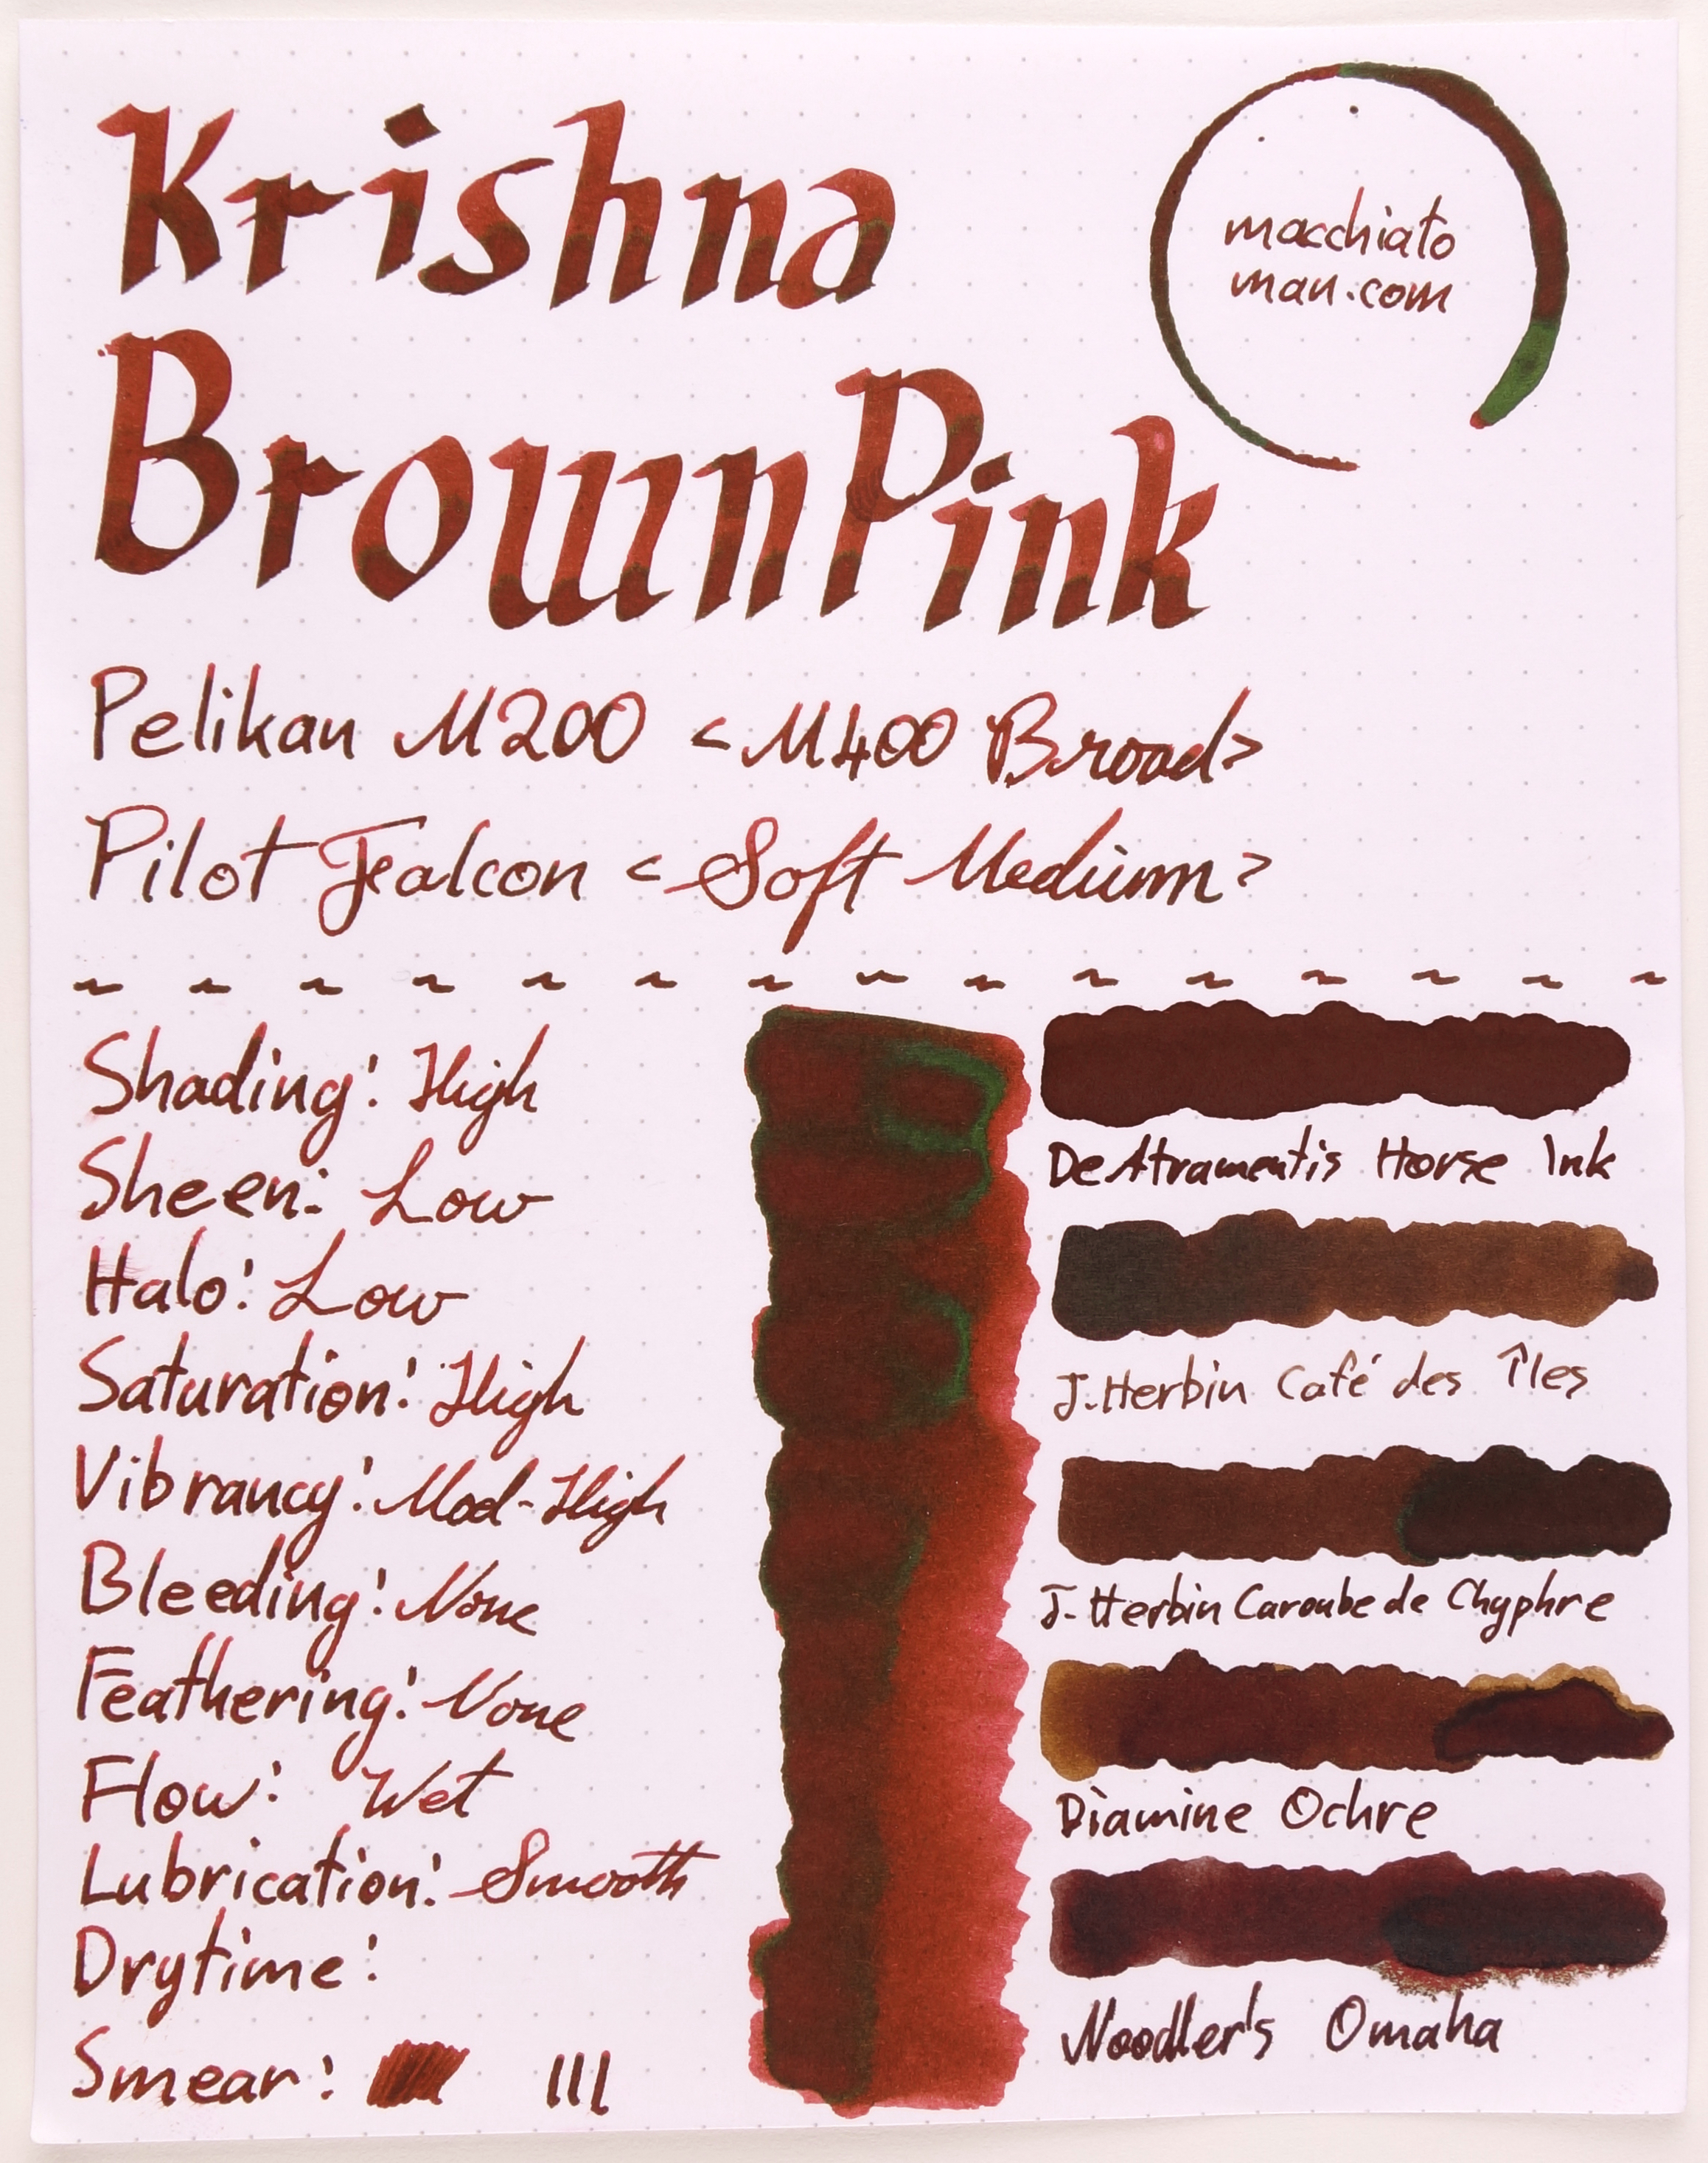 Krishna
BrownPink
macchiato
man.com
Pelikan M200 <M400 Broad>
Pilot Falcon <Soft Medium>
Shading: High
Sheen: Low
Halo: Low
Saturation: High
Vibrancy: Mod-High
Bleeding: None
Feathering: None
Flow: Wet
Lubrication: Smooth
Drytime:
Smear:
DeAtramentis Horse Ink
J. Herbin Café des Îles
J. Herbin Caroube de Chyphre
Diamine Ochre
Noodler's Omaha